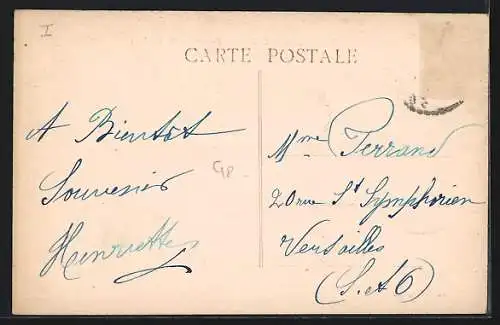 I
CARTE POSTALE
A Bientot
Souvenir
Henriette
G8
Mme Ferrand
20 rue St Symphorien
Versailles
(S. et O)